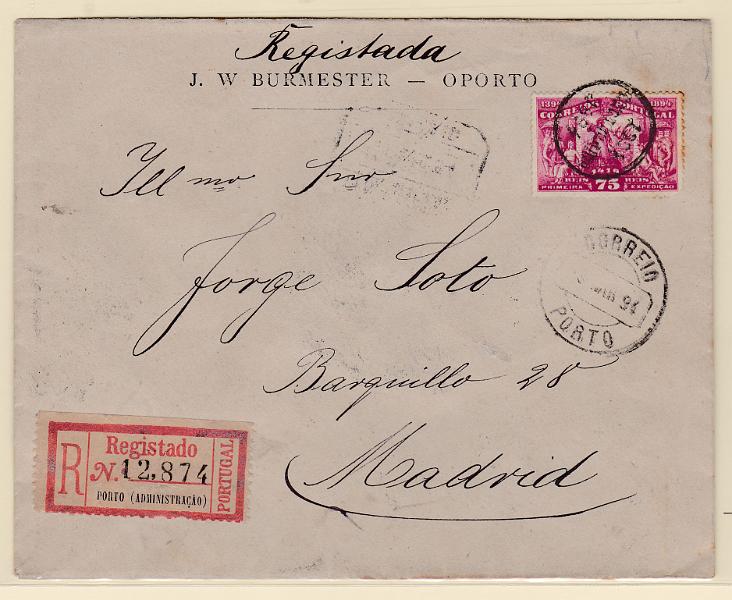 Registada
J. W BURMESTER — OPORTO
1394 CORREIO PORTUGAL 1894
REIS 75 REIS
PRIMEIRA EXPEDIÇÃO
Ill mo Snr
Jorge Soto
CORREIO
94
PORTO
Barquillo 28
Madrid
R
Registado
N. 12,874
PORTO (ADMINISTRAÇÃO)
PORTUGAL